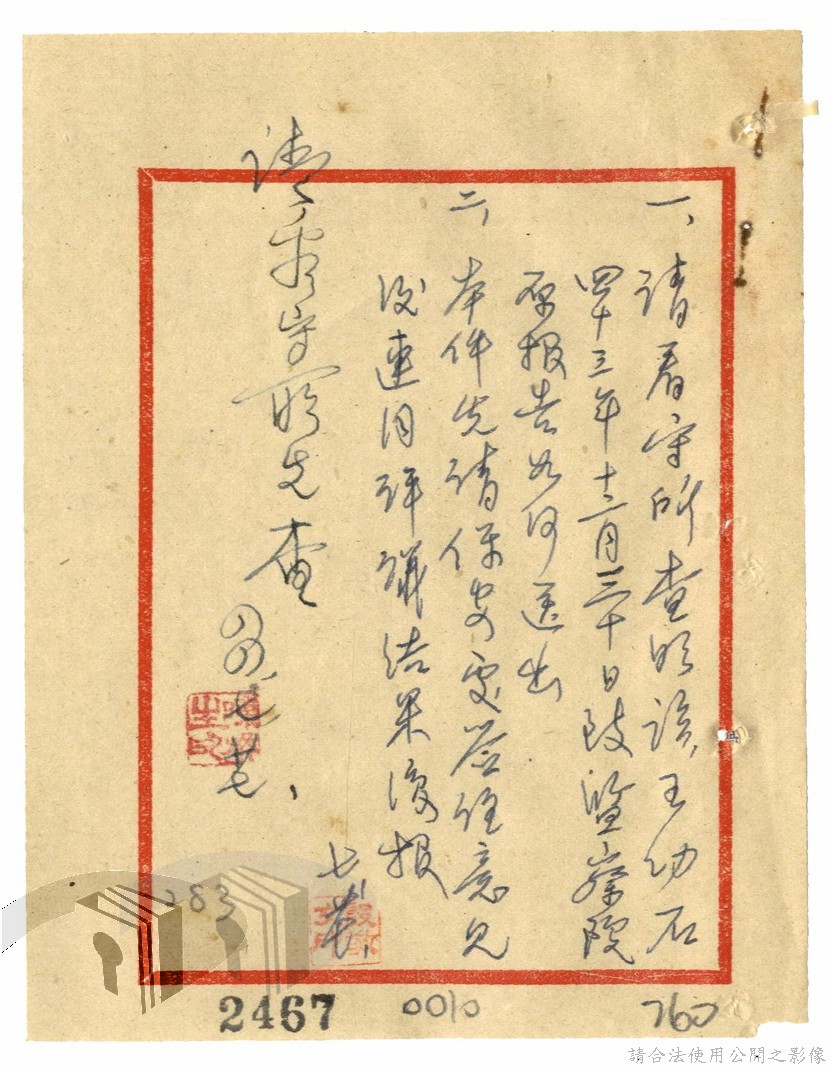 一、請看守所查明該王幼石
四十三年十二月三十日致監察院
原報告如何送出
二、本件先請保安處簽註意見
後連同評議結果復報
七、
請看守所先查
四四、七、廿七、
283
2467
0010
760
請合法使用公開之影像